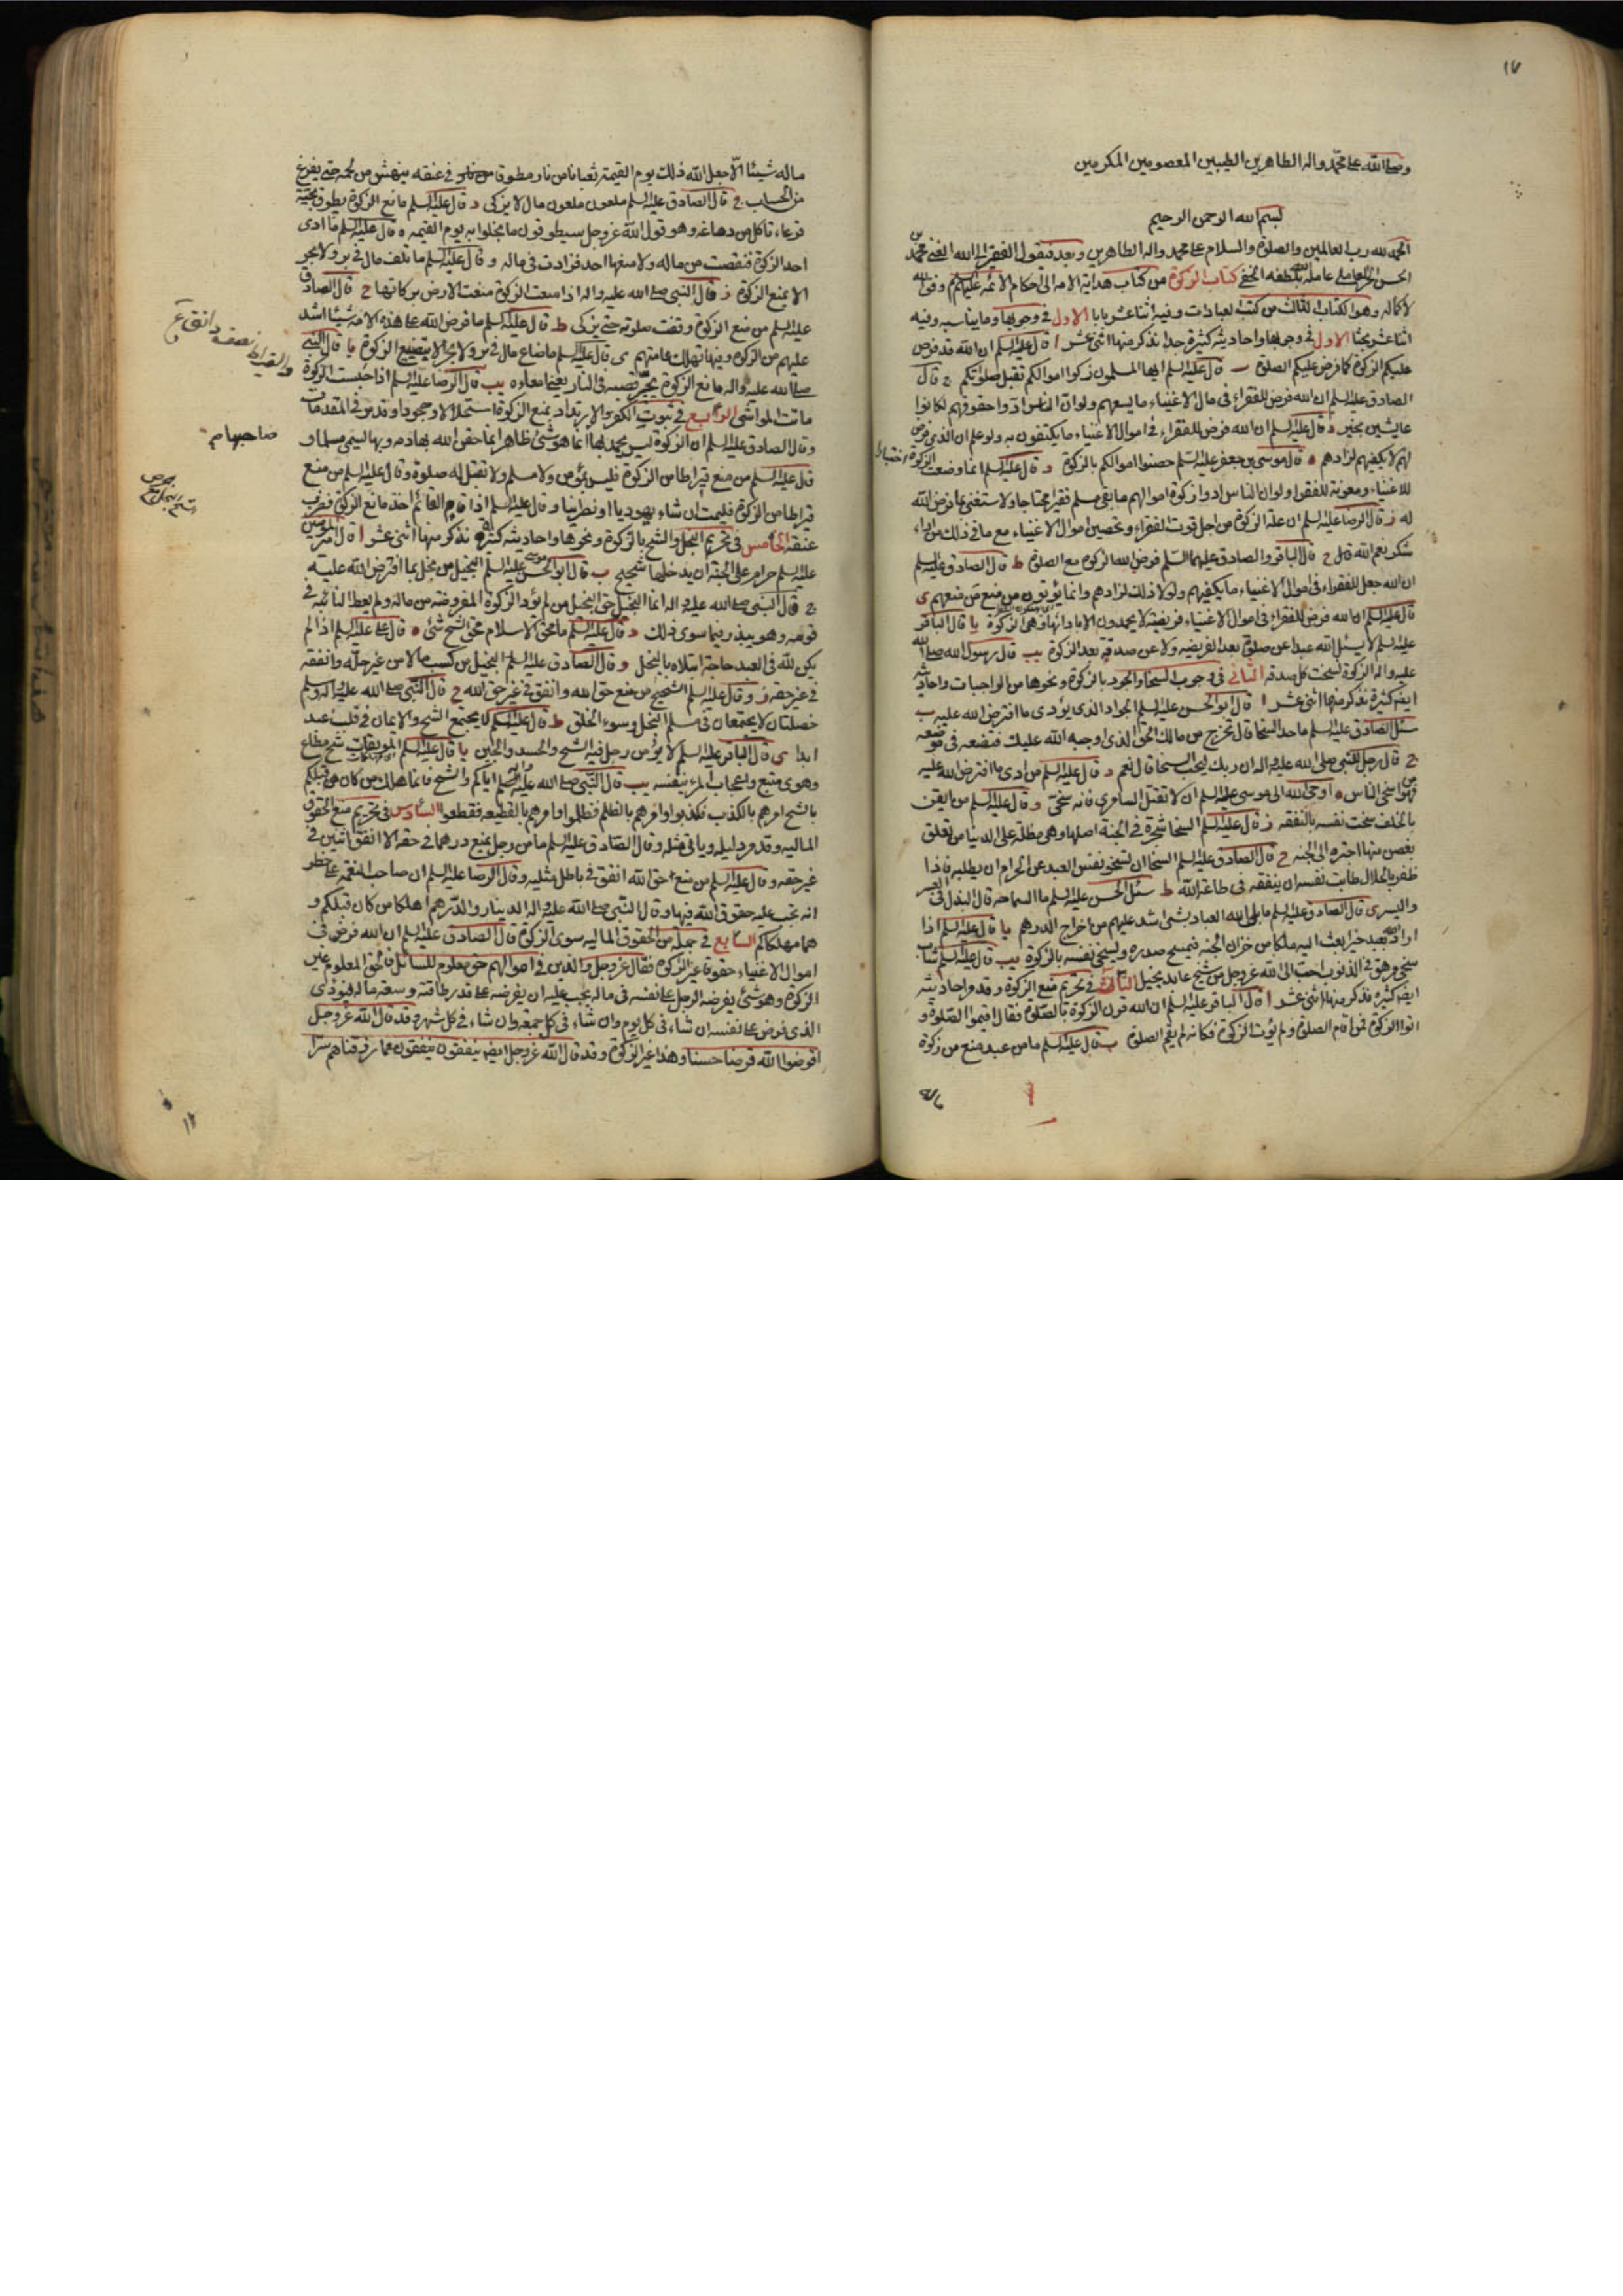 ١٧
وصلى الله على محمد واله الطاهرين الطيبين المعصومين المكرمين
بسم الله الرحمن الرحيم
الحمد لله رب العالمين والصلوة والسلام على محمد واله الطاهرين وبعد فيقول الفقير الى الله الغنى محمد بن
الحسن الحر العاملى عامله الله بلطفه الخفى كتاب الزكوة من كتاب هداية الامه الى احكام الائمه عليهم السلم وفق الله
لاكماله وهو الكتاب الثالث من كتب العبادات وفيه اثنا عشر بابا الاول فى وجوبها وما يناسبه وفيه
اثنا عشر بحثا الاول فى وجوبها واحاديثه كثيرة جدا نذكر منها اثنى عشر ا قال عليه السلم ان الله قد فرض
عليكم الزكوة كما فرض عليكم الصلوة ب قال عليه السلم ايها المسلمون زكوا اموالكم تقبل صلوتكم ج قال
الصادق عليه السلم ان الله فرض للفقراء فى مال الاغنياء ما يسعهم ولو ان الناس ادوا حقوقهم لكانوا
عايشين بخير د قال عليه السلم ان الله فرض للفقراء فى اموال الاغنياء ما يكتفون به ولو علم ان الذى فرض
لهم لا يكفيهم لزادهم ه قال موسى بن جعفر عليه السلم حصنوا اموالكم بالزكوة و قال عليه السلم انما وضعت الزكوة اختبارا
للاغنياء ومعونة للفقراء ولو ان الناس ادوا زكوة اموالهم ما بقى مسلم فقيرا محتاجا ولاستغنى بما فرض الله
له ز قال الرضا عليه السلم ان علة الزكوة من اجل قوت الفقراء وتحصين اموال الاغنياء مع ما فى ذلك من اداء
شكر نعم الله ح قال الباقر والصادق عليهما السلم فرض الله الزكوة مع الصلوة ط قال الصادق عليه السلم
ان الله جعل للفقراء فى اموال الاغنياء ما يكفيهم ولولا ذلك لزادهم وانما يؤتون من منع من منعهم ى
قال عليه السلم ان الله فرض للفقراء فى اموال الاغنياء فريضة لا يحمدون الا بادائها وهى الزكوة يا قال الباقر
عليه السلم لا يسئل الله عبدا عن صلوة بعد الفريضه ولا عن صدقة بعد الزكوة يب قال رسول الله صلى الله
عليه واله الزكوة نسخت كل صدقه الثانى فى وجوب السخا والجود بالزكوة ونحوها من الواجبات واحاديثه
ايضا كثيرة نذكر منها اثنى عشر ا قال ابو الحسن عليه السلم الجواد الذى يؤدى ما افترض الله عليه ب
سئل الصادق عليه السلم ما حد السخا قال تخرج من مالك الحق الذى اوجبه الله عليك فتضعه فى موضعه
ج قال رجل للنبى صلى الله عليه واله ان ربك ليحب السخا قال نعم د قال عليه السلم من ادى ما افترض الله عليه
فهو اسخى الناس ه اوحى الله الى موسى عليه السلم ان لا تقتل السامرى فانه سخى و قال عليه السلم من ايقن
بالخلف سخت نفسه بالنفقه ز قال عليه السلم السخا شجرة فى الجنة اصلها وهى مظلة على الدنيا من تعلق
بغصن منها اجتره الى الجنه ح قال الصادق عليه السلم السخا ان تسخو نفس العبد عن الحرام ان يطلبه فاذا
ظفر بالحلال طابت نفسه ان ينفقه فى طاعة الله ط سئل الحسن عليه السلم ما السماحة قال البذل فى العسر
واليسر ى قال الصادق عليه السلم ما بلى الله العباد بشى اشد عليهم من اخراج الدرهم يا قال عليه السلم اذا
اراد الله بعبد خيرا بعث اليه ملكا من خزان الجنه فيمسح صدره ويسخى نفسه بالزكوة يب قال عليه السلم شاب
سخى مرهق فى الذنوب احب الى الله عز وجل من شيخ عابد بخيل الثالث فى تحريم منع الزكوة وقد مر احاديثه
ايضا كثيرة نذكر منها اثنى عشر ا قال الباقر عليه السلم ان الله قرن الزكوة بالصلوة فقال اقيموا الصلوة و
اتوا الزكوة فمن اقام الصلوة ولم يؤت الزكوة فكانه لم يقم الصلوة ب قال عليه السلم ما من عبد منع من زكوة
ماله
ماله شيئا الا جعل الله ذلك يوم القيمة ثعبانا من نار مطوقا فى عنقه ينهش من لحمه حتى يفرغ
من الحساب ج قال الصادق عليه السلم ملعون ملعون مال لا يزكى د قال عليه السلم مانع الزكوة يطوق بحية
قرعاء تاكل من دماغه وهو قول الله عز وجل سيطوقون ما بخلوا به يوم القيمه ه قال عليه السلم ما ادى
احد الزكوة فنقصت من ماله ولا منعها احد فزادت فى ماله و قال عليه السلم ما تلف مال فى بر ولا بحر
الا بمنع الزكوة ز قال النبى صلى الله عليه واله اذا منعت الزكوة منعت الارض بركاتها ح قال الصادق
عليه السلم من منع الزكوة وقفت صلوته حتى يزكى ط قال عليه السلم ما فرض الله على هذه الامه شيئا اشد
عليهم من الزكوة وفيها تهلك عامتهم ى قال عليه السلم ما ضاع مال فى بر ولا بحر الا بتضييع الزكوة يا قال النبى
صلى الله عليه واله مانع الزكوة يجر قصبه فى النار يعنى امعاءه يب قال الرضا عليه السلم اذا حبست الزكوة
ماتت المواشى الرابع فى ثبوت الكفر والارتداد بمنع الزكوة استحلالا وجحودا وقد مر فى المقدمات
وقال الصادق عليه السلم ان الزكوة ليس يحمد بها انما هو شئ ظاهر انما حقن الله بها دمه وبها سمى مسلما و
قال عليه السلم من منع قيراطا من الزكوة فليس بمؤمن ولا مسلم ولا تقبل له صلوة وقال عليه السلم من منع
قيراطا من الزكوة فليمت ان شاء يهوديا او نصرانيا وقال عليه السلم اذا قام القائم اخذ مانع الزكوة فضرب
عنقه الخامس فى تحريم البخل والشح بالزكوة ونحوها واحاديثه كثيرة نذكر منها اثنى عشر ا قال امير المؤمنين
عليه السلم حرام على الجنة ان يدخلها شحيح ب قال ابو الحسن موسى عليه السلم البخيل من بخل بما افترض الله عليه
ج قال النبى صلى الله عليه واله انما البخيل حق البخيل من لم يؤد الزكوة المفروضة من ماله ولم يعط النائبة فى
قومه وهو يبذر فيما سوى ذلك د قال عليه السلم ما محق الاسلام محق الشح شئ ه قال على عليه السلم اذا لم
يكن لله فى العبد حاجة ابتلاه بالبخل و قال الصادق عليه السلم البخيل من كسب مالا من غير حله وانفقه
فى غير حقه ز وقال عليه السلم الشحيح من منع حق الله وانفق فى غير حق الله ح قال النبى صلى الله عليه واله وسلم
خصلتان لا يجتمعان فى مسلم البخل وسوء الخلق ط قال عليه السلم لا يجتمع الشح والايمان فى قلب عبد
ابدا ى قال الباقر عليه السلم لا يؤمن رجل فيه الشح والحسد والجبن يا قال عليه السلم الموبقات شح مطاع
وهوى متبع واعجاب المرء بنفسه يب قال النبى صلى الله عليه واله وسلم اياكم والشح فانما هلك من كان قبلكم
بالشح امرهم بالكذب فكذبوا وامرهم بالظلم فظلموا وامرهم بالقطيعه فقطعوا السادس فى تحريم منع الحقوق
الماليه وقد مر دليله وياتى مثله وقال الصادق عليه السلم ما من رجل يمنع درهما فى حقه الا انفق اثنين فى
غير حقه وقال عليه السلم من منع حق الله انفق فى باطل مثليه وقال الرضا عليه السلم ان صاحب النعمه على خطر
انه تجب عليه حقوق الله فيها وقال النبى صلى الله عليه واله الدينار والدرهم اهلكا من كان قبلكم و
هما مهلكاكم السابع فى جملة من الحقوق الماليه سوى الزكوة قال الصادق عليه السلم ان الله فرض فى
اموال الاغنياء حقوقا غير الزكوة فقال عز وجل والذين فى اموالهم حق معلوم للسائل فالحق المعلوم غير
الزكوة وهو شئ يفرضه الرجل على نفسه فى ماله يجب عليه ان يفرضه على قدر طاقته وسعة ماله فيؤدى
الذى فرض على نفسه ان شاء فى كل يوم وان شاء فى كل جمعة وان شاء فى كل شهر وقد قال الله عز وجل
اقرضوا الله قرضا حسنا وهذا غير الزكوة وقد قال الله عز وجل ايضا ينفقون مما رزقناهم سرا
والقيراط نصف دانق
صاحبها م
١٢